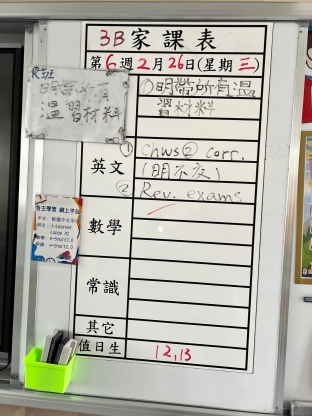 3B家課表
第6週2月26日(星期三)
R班
明帶所有
溫習材料
①明帶所有溫
習材料
英文
① Chws② corr.
(明不交)
② Rev. exams
數學
常識
其它
值日生
12,13
自主學習 網上平台